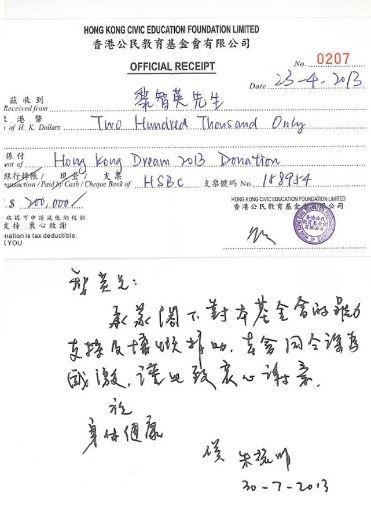 HONG KONG CIVIC EDUCATION FOUNDATION LIMITED
香港公民教育基金會有限公司
OFFICIAL RECEIPT
No. 0207
Date 23-4-2013
茲收到 黎智英先生
Received from
港幣
of H.K. Dollars Two Hundred Thousand Only
係付
ment of Hong Kong Dream 2013 Donation
銀行轉賬/現金/支票 HSBC 支票號码No. 188984
ansaction / Paid by Cash / Cheque Bank of
$ 200,000/
收據可申請減低稅
支持 衷心致謝
onation is tax deductible.
K YOU
HONG KONG CIVIC EDUCATION FOUNDATION LIMITED
香港公民教育基金會有限公司
智英兄:
承蒙閣下對本基金會的
支持及慷慨捐助,
感激,謹此致衷心謝意.
祝
身体健康
30-7-2013